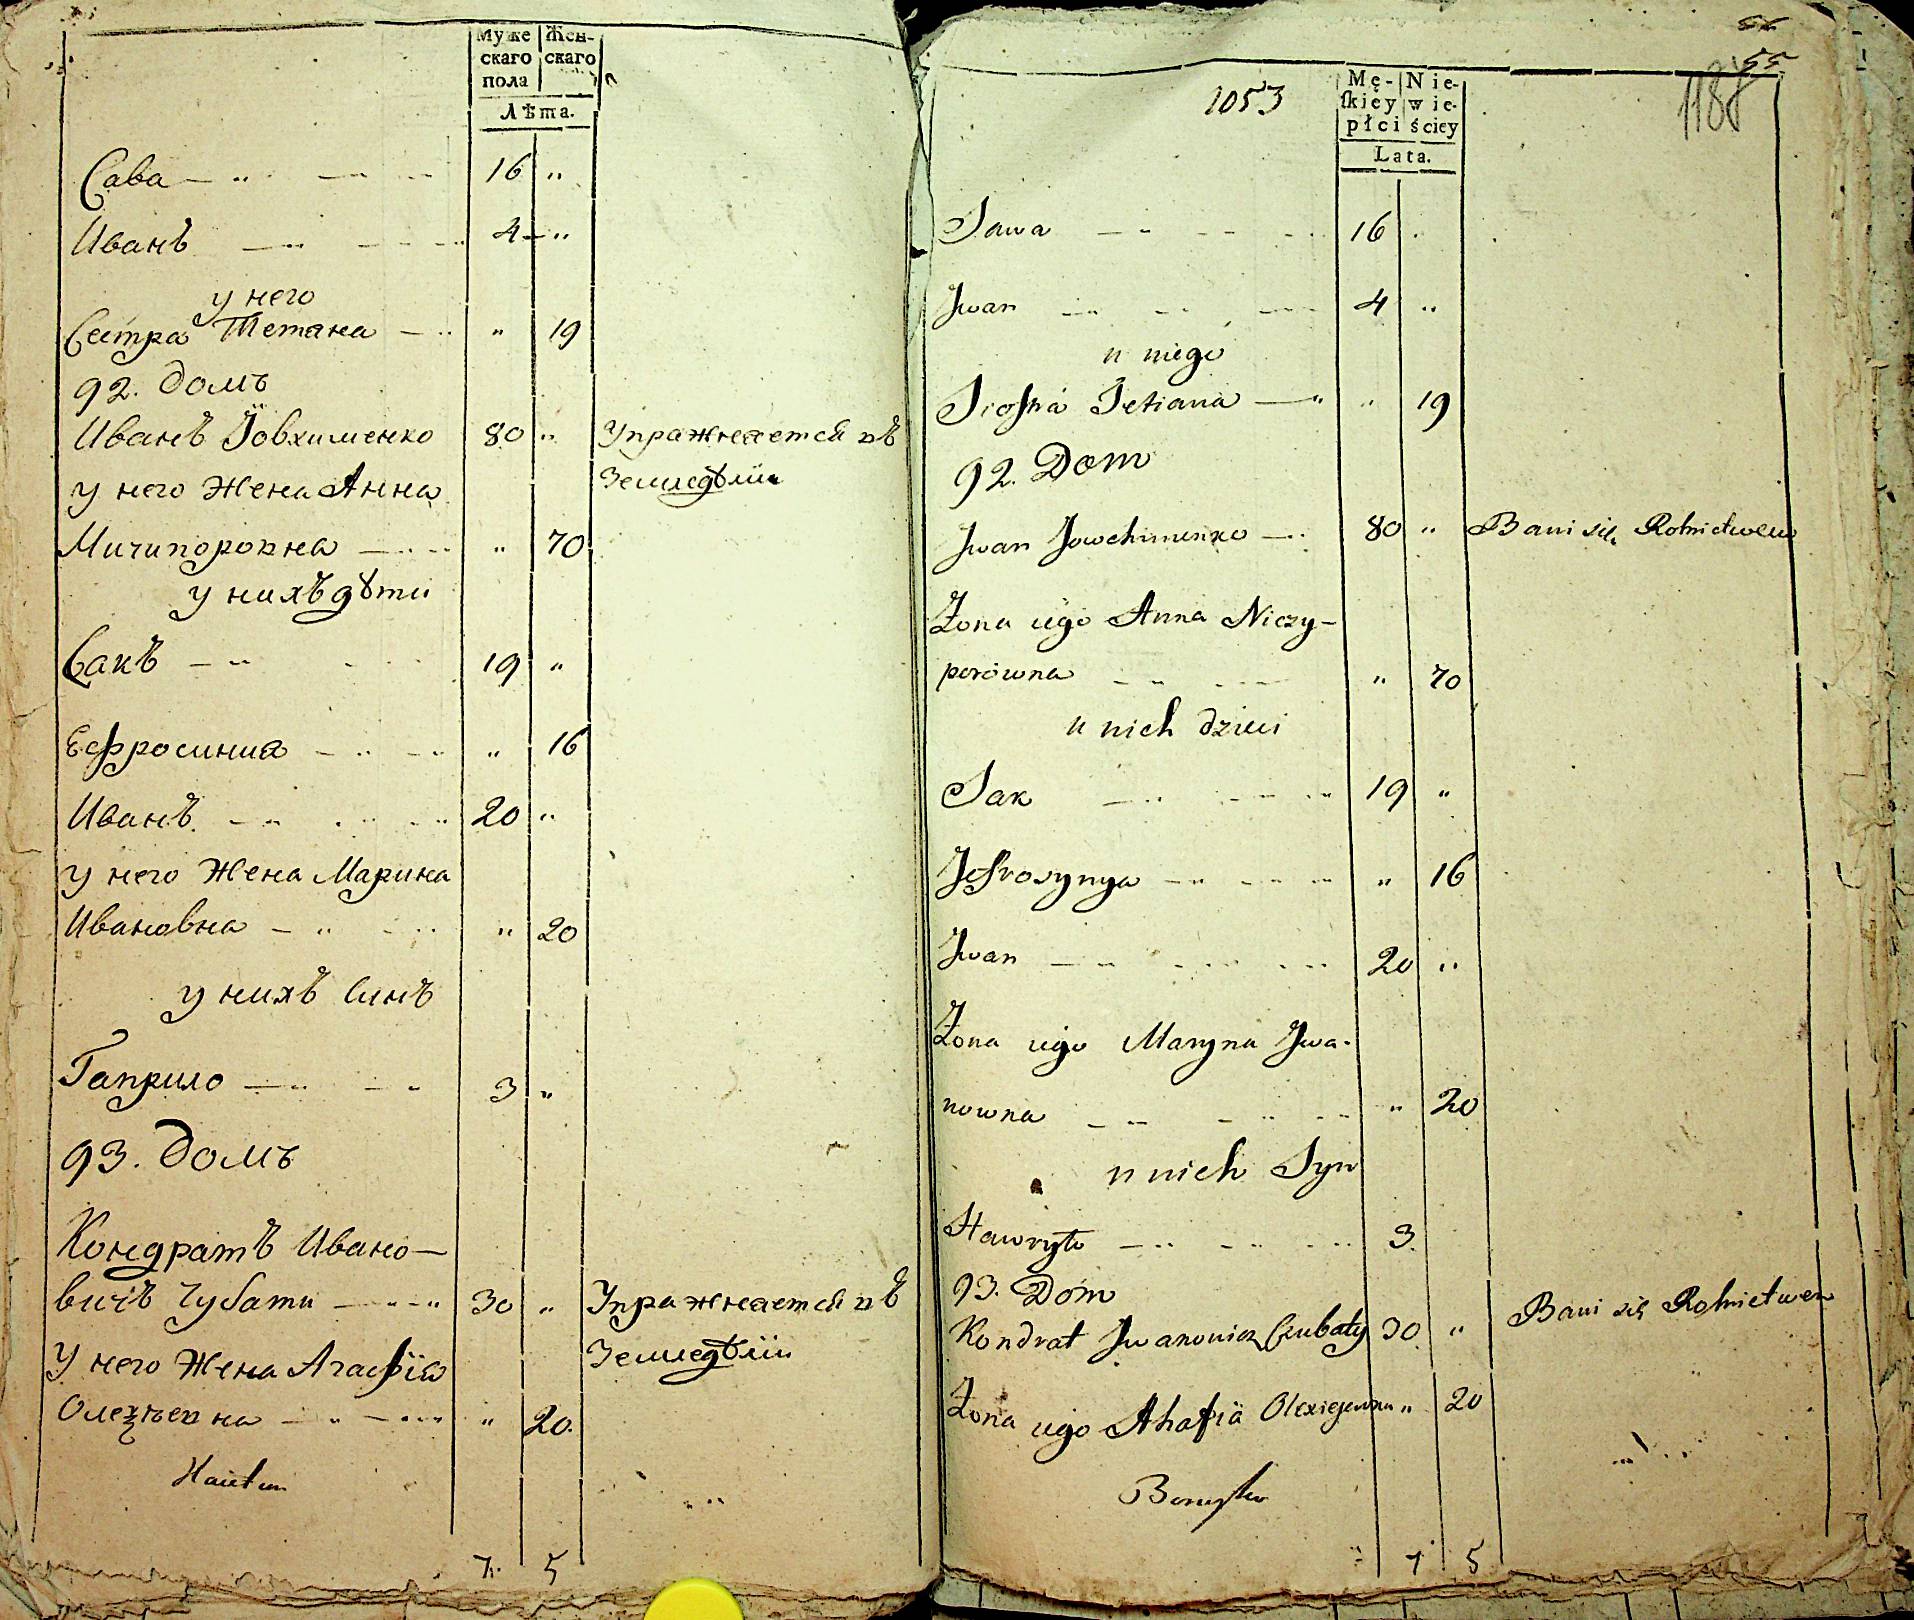 Муже Жен-
скаго скаго
пола
Лѣта.
Сава 16 "
Иванъ 4 "
у него
Сестра Тетяна " 19
92. Домъ
Иванъ Іовхименко 80 " Упражняется въ
у него Жена Анна Земледѣліи
Ничипоровна " 70
у нихъ дѣти
Сакъ 19 "
Ефросиния " 16
Иванъ 20 "
у него Жена Марина
Ивановна " 20
у нихъ Синъ
Гаврило 3 "
93. Домъ
Кондратъ Ивано-
вичъ Чубати 30 " Упражняется въ
У него Жена Агафїя Земледѣліи
Олексѣевна " 20.
7. 5
55
1053
118
Mę- Nie-
ſkiey wie-
płci ściey
Lata.
Sawa 16
Jwan 4 "
u niego
Siostra Tetiana " 19
92. Dom
Jwan Jowchimenko 80 " Bawi się Rolnictwem
Żona iego Anna Niczy-
porowna " 70
u nich dzieci
Sak 19 "
Jefrosynya " 16
Jwan 20 "
Żona iego Maryna Jwa-
nowna " 20
u nich Syn
Hawryło 3.
93. Dom
Kondrat Jwanowicz Czubaty 30 " Bawi się Rolnictwem
Żona iego Ahafia Olexiejewna " 20
7 5